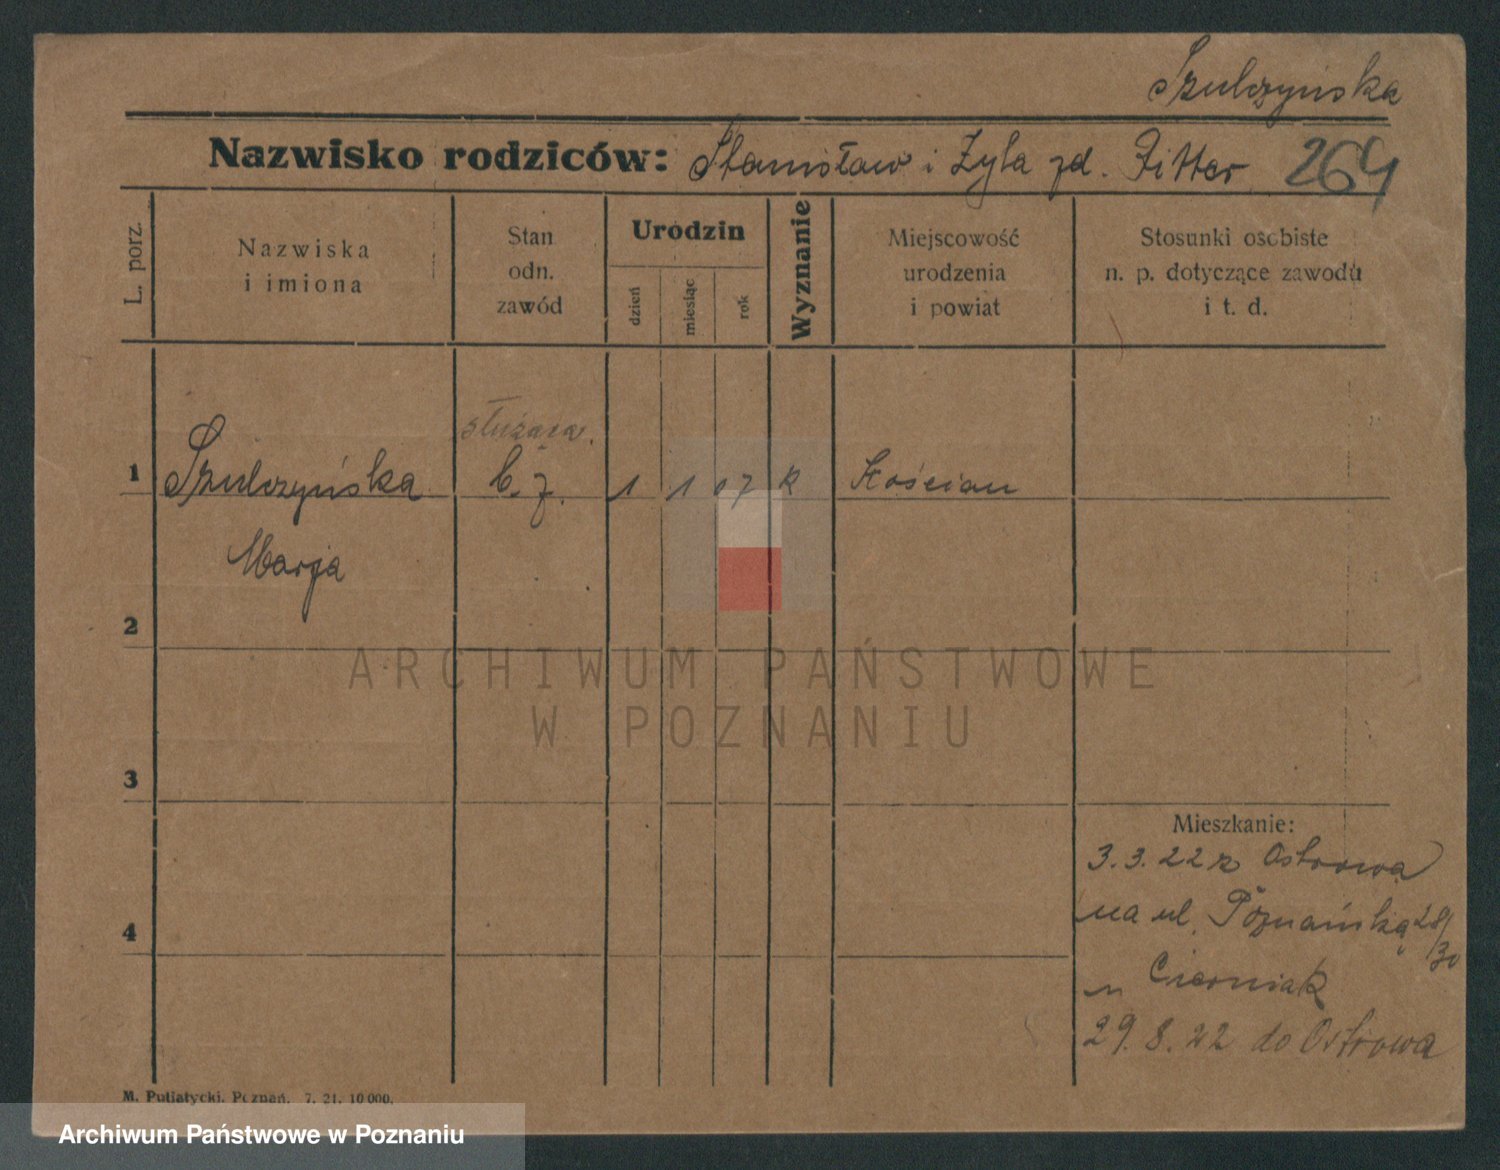 Szulczyńska
Nazwisko rodziców: Stanisław i Zyla zd. Ritter 264
L. porz.
Nazwiska
i imiona
Stan
odn.
zawód
Urodzin
dzień
miesiąc
rok
Wyznanie
Miejscowość
urodzenia
i powiat
Stosunki osobiste
n. p. dotyczące zawodu
i t. d.
służąca.
1 Szulczyńska b. j. 1 1 07 k Kościan
Marja
2
3
4
Mieszkanie:
3.3.22 z Ostrowa
na ul. Poznańską 28/30
u Cierniak
29.8.22 do Ostrowa
M. Putiatycki. Poznań. 7. 21. 10000.
ARCHIWUM PAŃSTWOWE
W POZNANIU
Archiwum Państwowe w Poznaniu